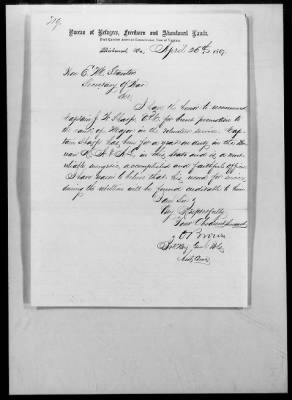 Bureau of Refugees, Freedmen and Abandoned Lands,
Richmond, Va., April 26th, 1867.
Hon E. M. Stanton
Secretary of War
Sir,
I have the honor to recommend
Captain J. H. Sharp for brevet promotion to
the rank of Major in the volunteer service. Cap-
tain Sharp has been for a year on duty in the Bu-
reau R. F. & A. L. in this State and is a most
reliable energetic, accomplished and faithful officer
I have reason to believe that his record for service
during the rebellion will be found creditable to him
I am Sir
Very Respectfully
Your Obedient Servant
O Brown